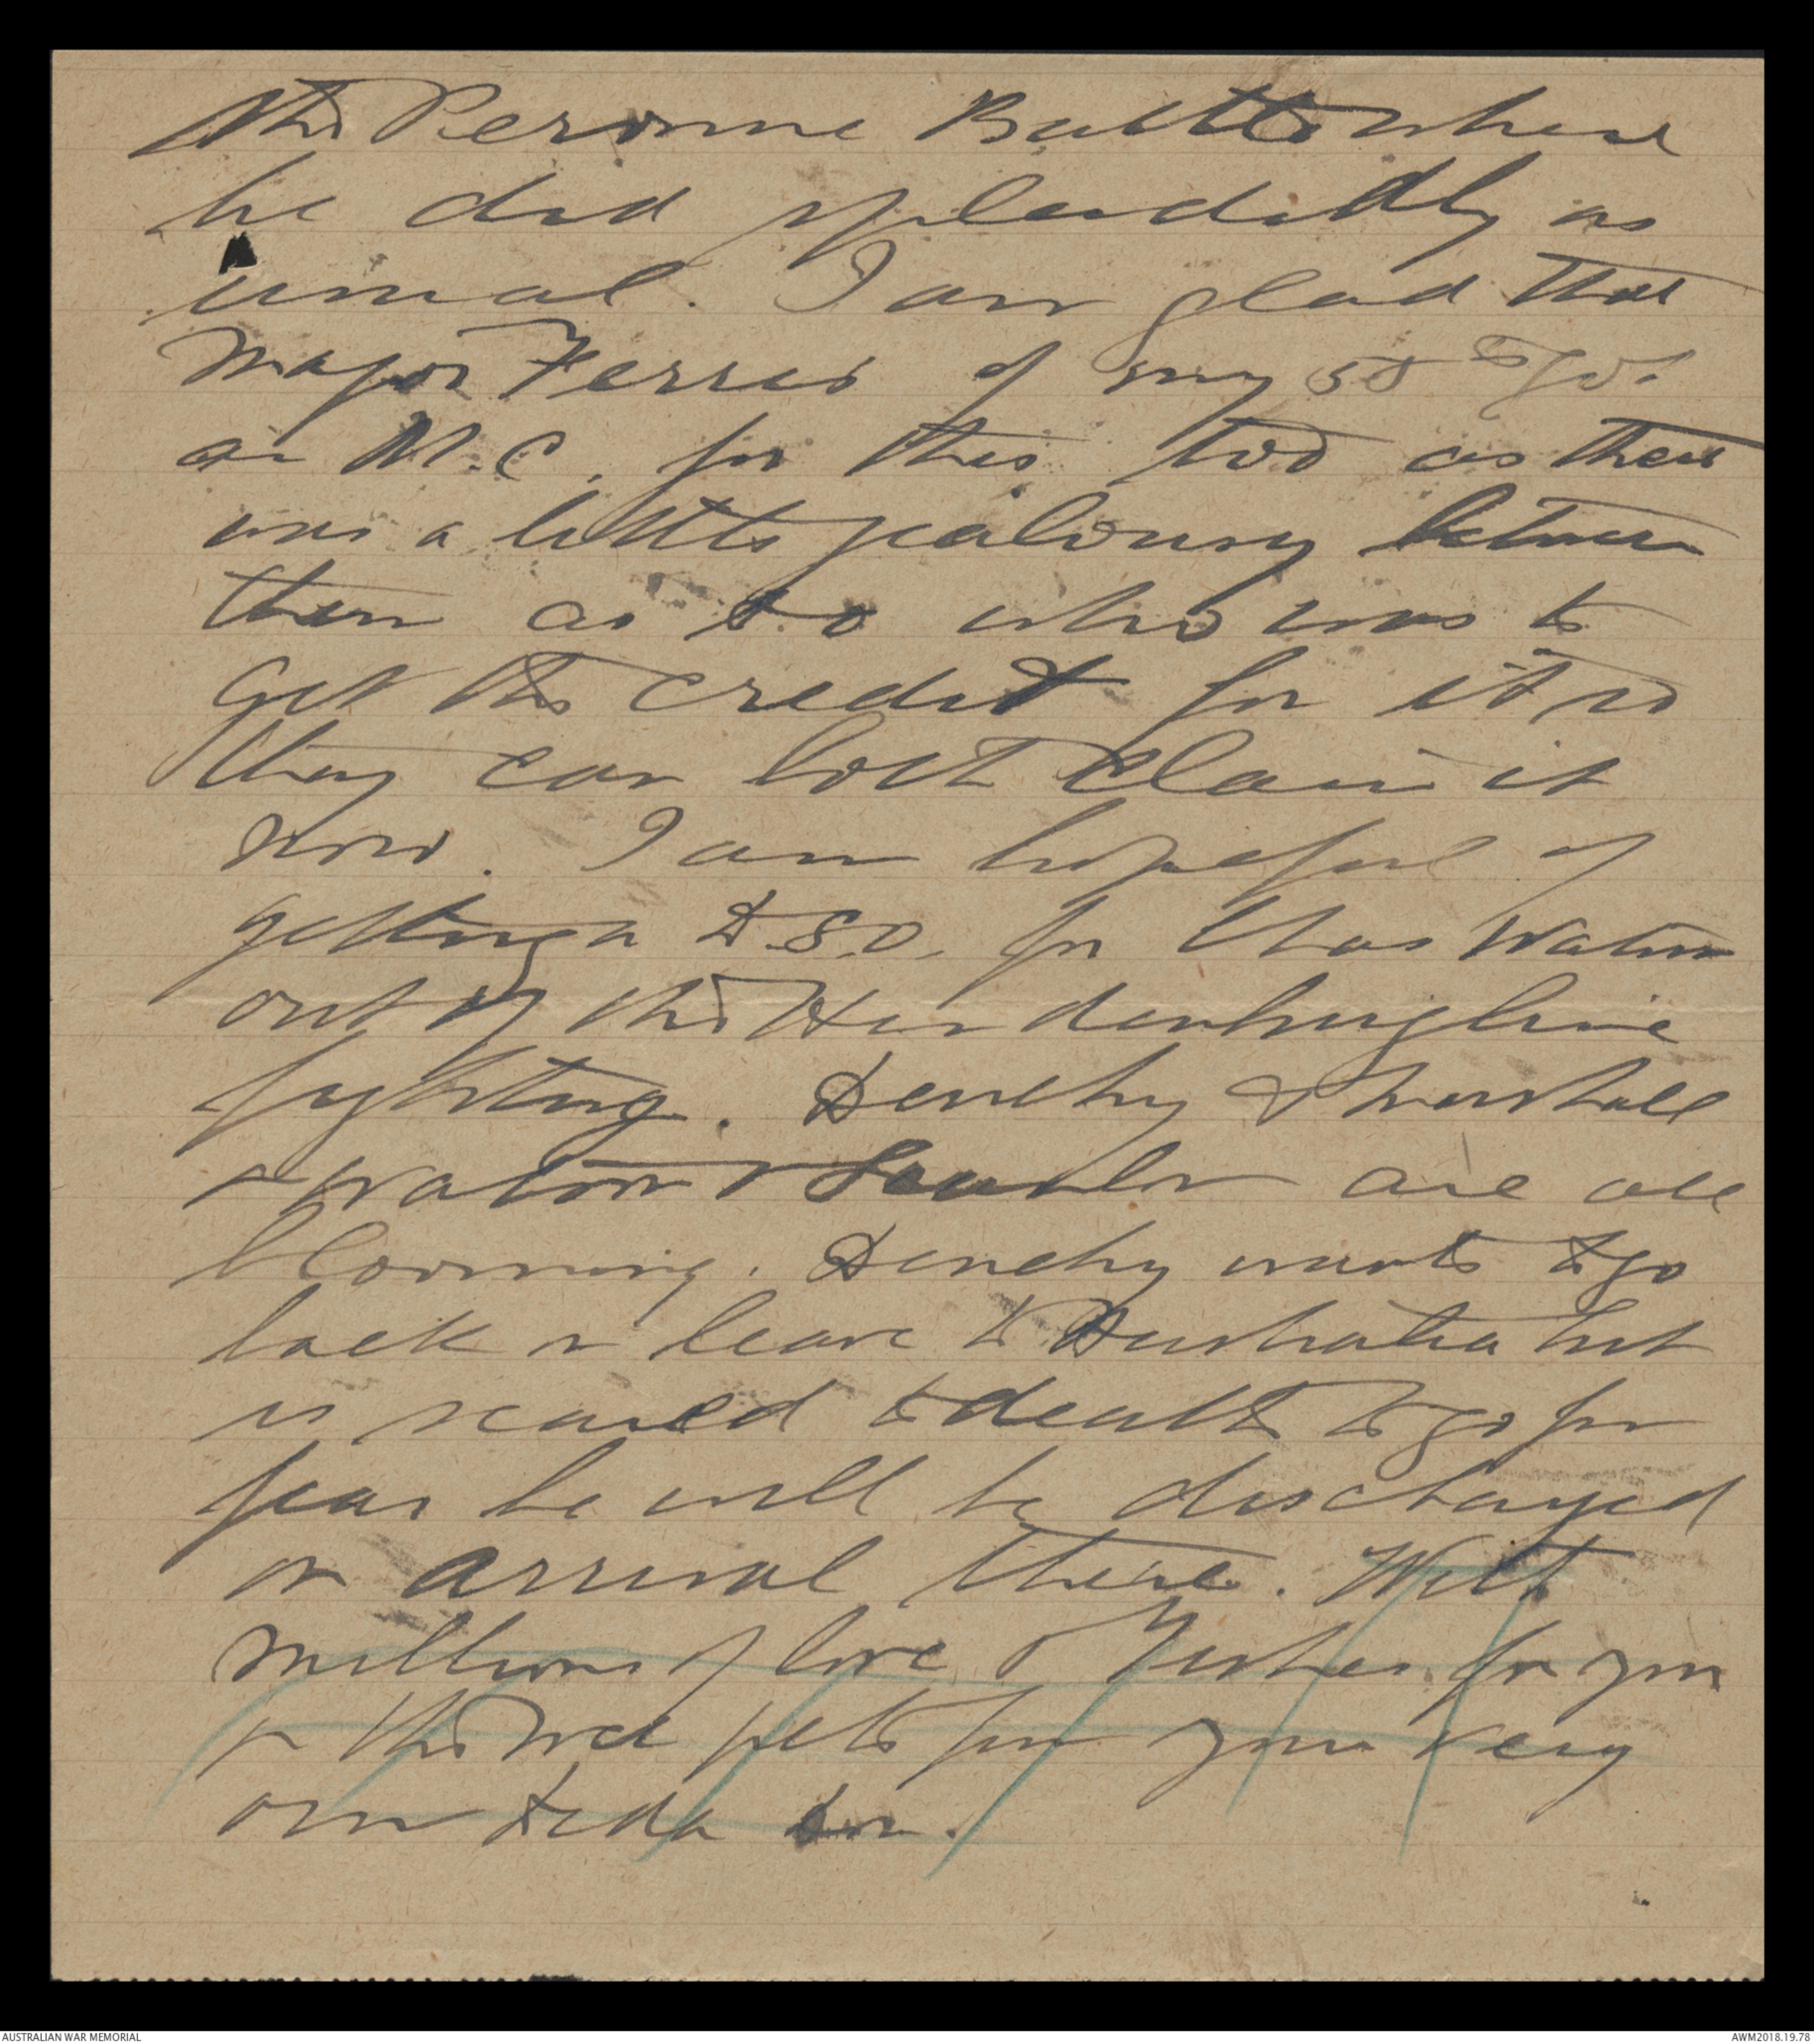 the Peronne Battle where
he did splendidly as
usual. I am glad that
Major Ferres of my 58th got
an M.C. for this too as there
was a little jealousy between
them as to who was to
get the credit for it so
they can both claim it
now. I am hopeful of
getting a D.S.O. for Chas Watson
out of the Hindenburg line
fighting. Denehy & Marshall
& Watson & Scanlan are all
blooming. Denehy wants to go
back on leave to Australia but
is scared to death to go for
fear he will be discharged
on arrival there. With
millions of love & kisses for you
& the wee pets from your very
own
AUSTRALIAN WAR MEMORIAL
AWM2018.19.78